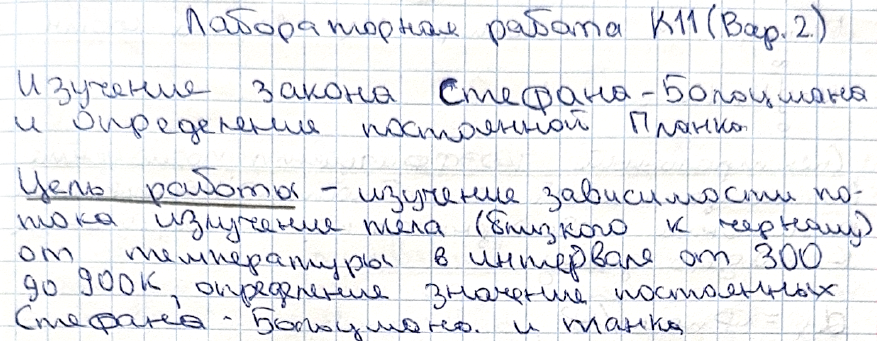 Лабораторная работа К11 (Вар. 2)
Изучение закона Стефана-Больцмана
и определение постоянной Планка
Цель работы - изучение зависимости по-
тока излучения тела (близкого к черному)
от температуры в интервале от 300
до 900К, определение значение постоянных
Стефана - Больцмана. и планка